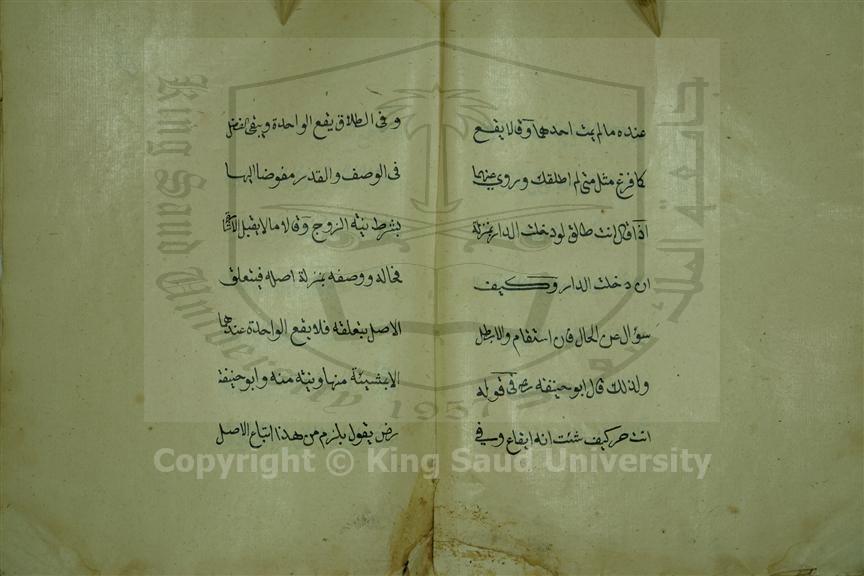 عنده ما لم يمت احدهما وقالا يقع
كما فرغ مثل متى لم اطلقك وروي عنهما
اذا قال انت طالق لو دخلت الدار بمنزلة
ان دخلت الدار وكيف
سؤال عن الحال فان استقام والا بطل
ولذلك قال ابو حنيفة رض فى قوله
انت حر كيف شئت انه ايقاع وفي
و فى الطلاق يقع الواحدة ويبقى الفضل
فى الوصف والقدر مفوضا اليها
بشرط نية الزوج وقالا ما لا يقبل الاشارة
فحاله ووصفه بمنزلة اصله فيتعلق
الاصل بتعلقه فلا يقع الواحدة عندهما
الا بمشيئة منها ونية منه وابو حنيفة
رض يقول يلزم من هذا اتباع الاصل
King Saud University
جامعة الملك سعود
1957
Copyright © King Saud University